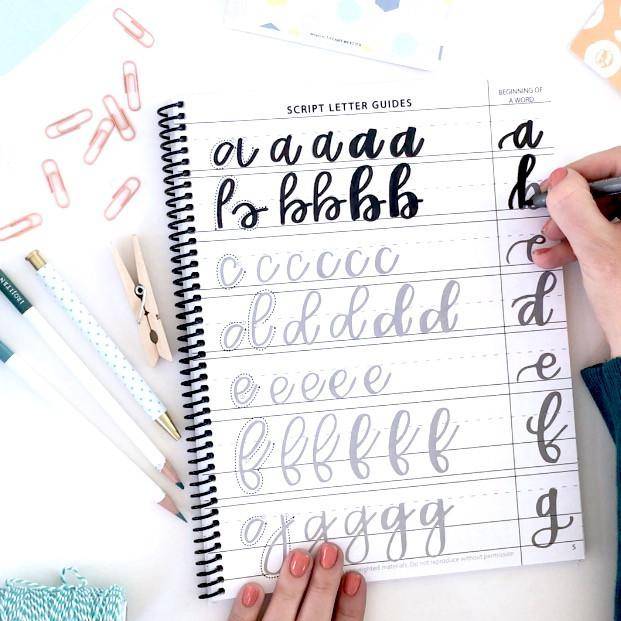 SCRIPT LETTER GUIDES
BEGINNING OF
A WORD
a a a a a a
b b b b b
b
c c c c c c
c
d d d d d
d
e e e e e
e
f f f f f f
f
g g g g g
g
5
materials. Do not reproduce without permission